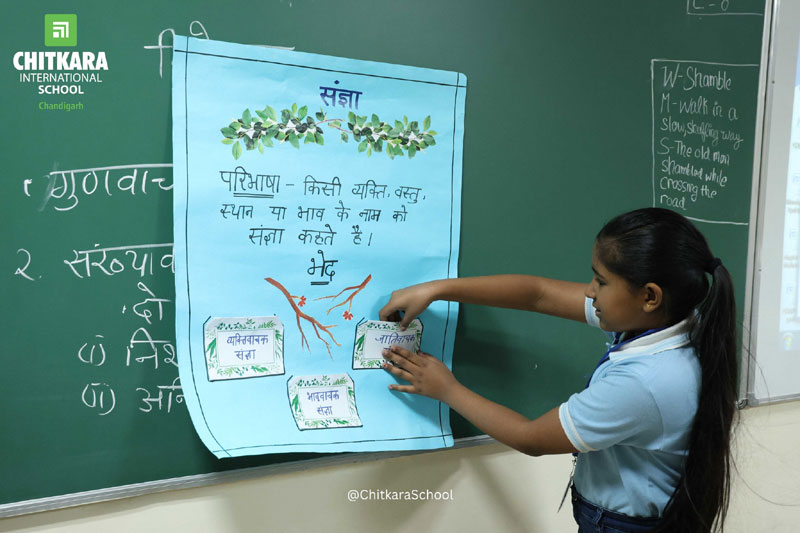 CHITKARA
INTERNATIONAL
SCHOOL
Chandigarh
संज्ञा
परिभाषा - किसी व्यक्ति, वस्तु,
स्थान या भाव के नाम को
संज्ञा कहते है।
भेद
व्यक्तिवाचक
संज्ञा
जातिवाचक
भाववाचक
संज्ञा
१ गुणवाच
२. संख्याव
दो
(i)
(ii)
W-Shamble
M-Walk in a
slow, shuffling way
S-The old man
shambled while
crossing the
road
@ChitkaraSchool